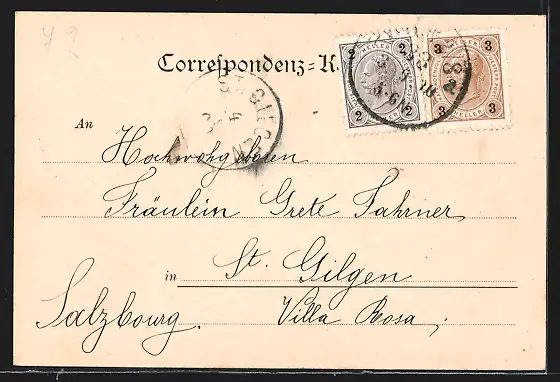 72
Correspondenz-K
2 HELLER 2
2 2
3 HELLER 3
3 3
ST. GILGEN
4
An
Hochwohgeboren
Fräulein Grete Sahrner
in St. Gilgen
Salzbourg. Villa Rosa,